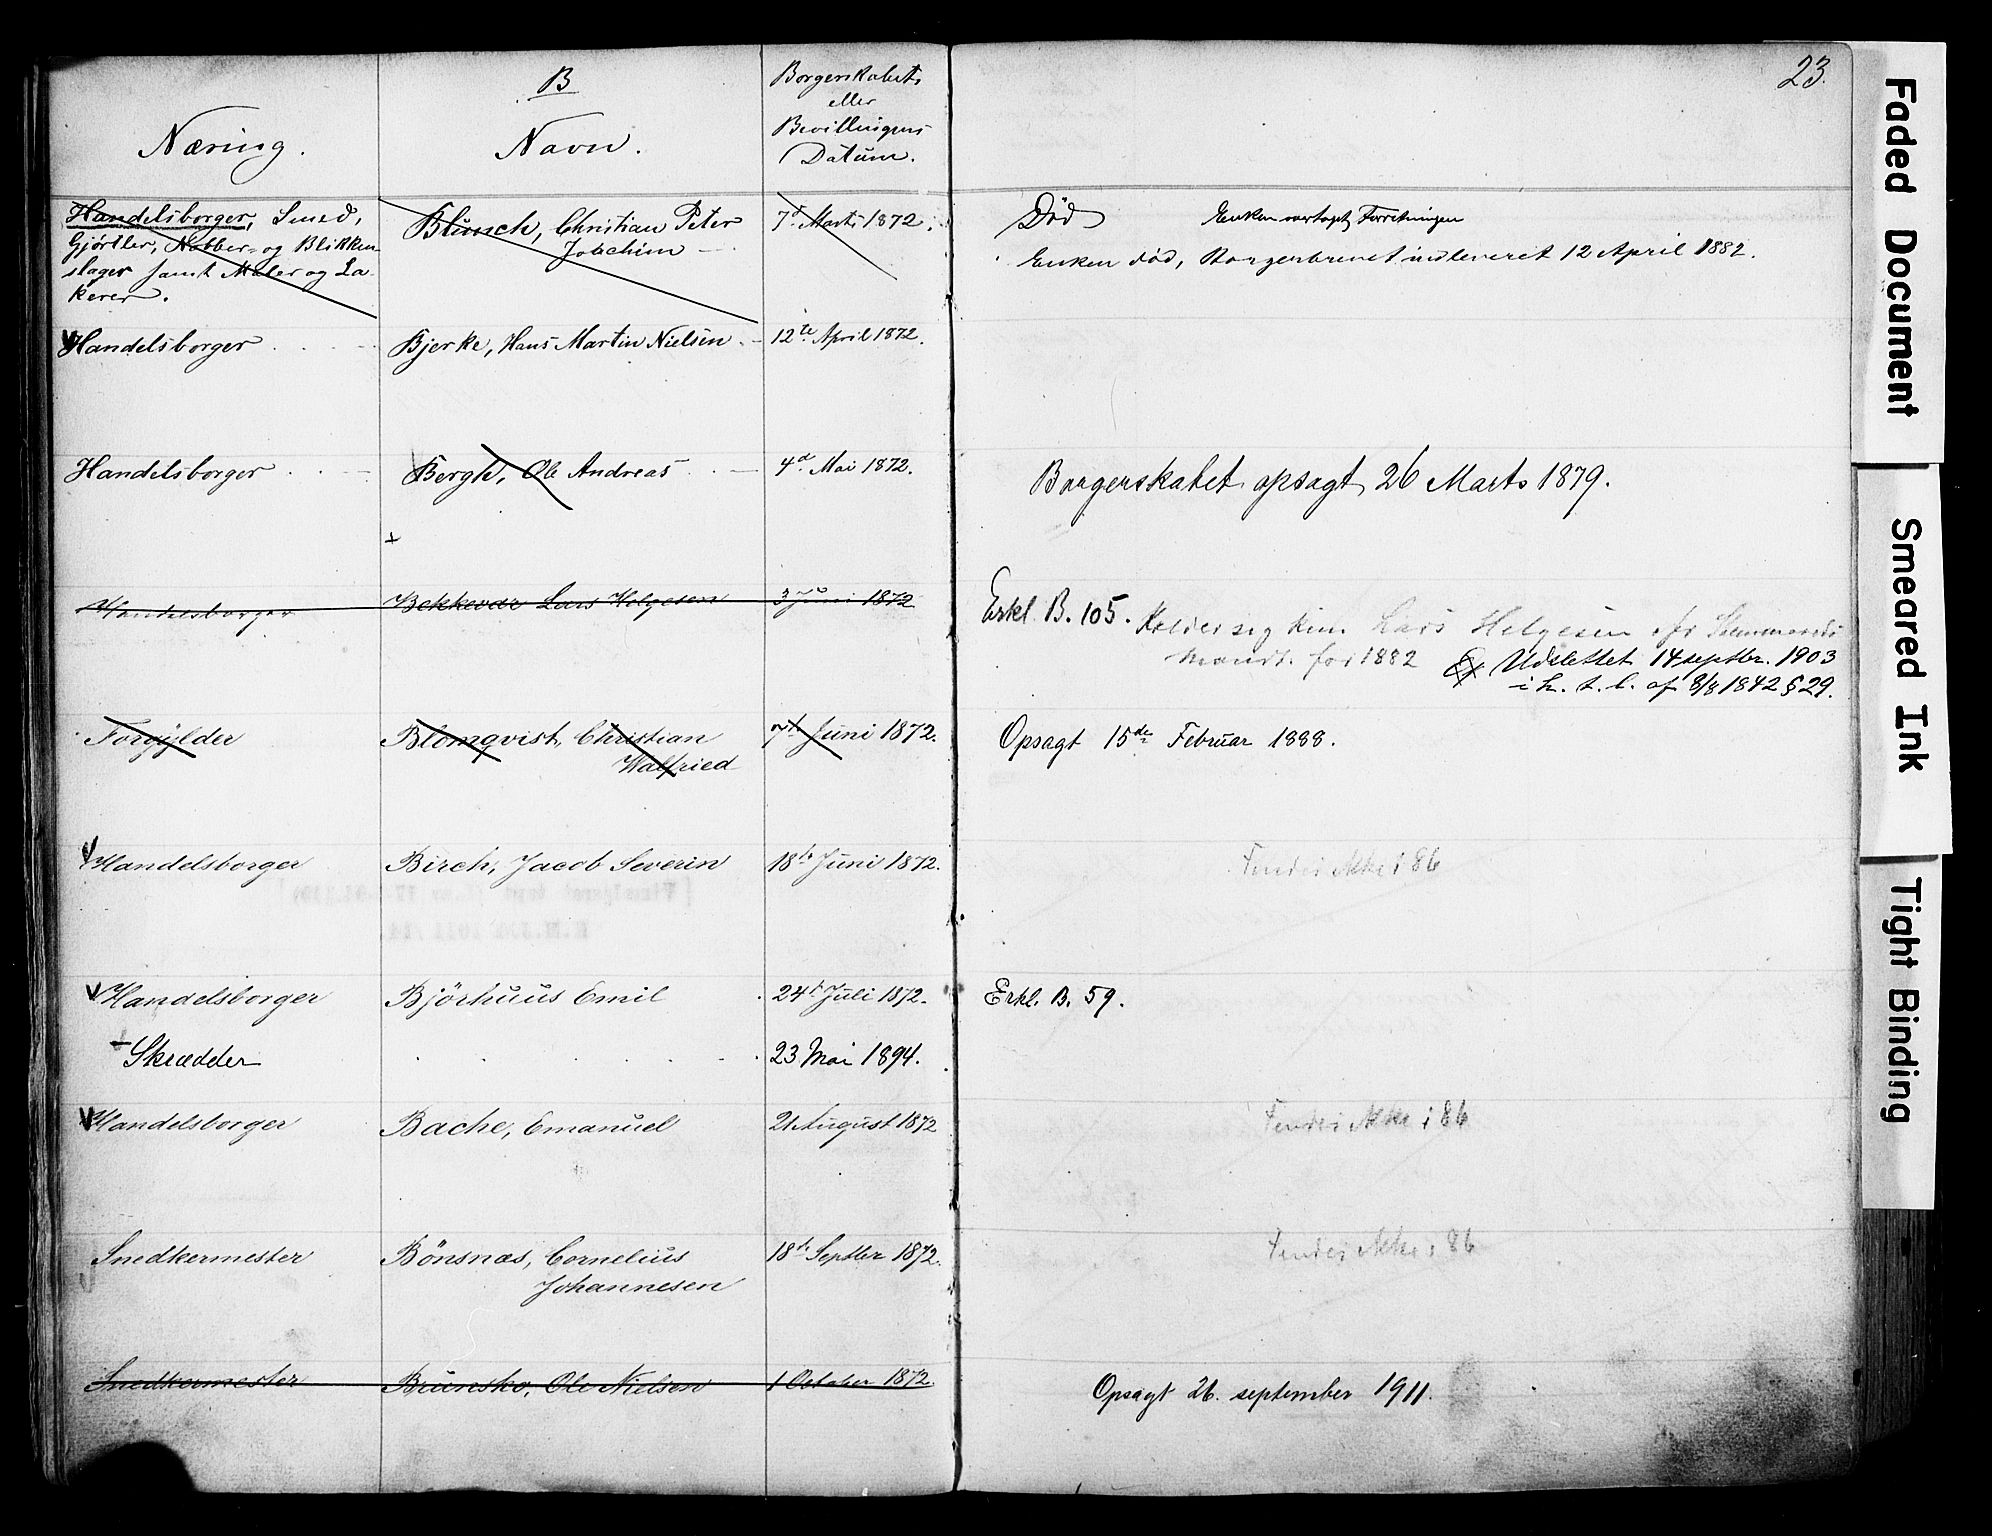 23.
B
Næring.
Navn.
Borgerskabets
eller
Bevillingens
Datum.
Handelsborger, Smed,
Gjörtler, Kobber- og Blikken-
slager samt Maler og La-
kerer.
Blunck, Christian Peter
Joachim
7de Marts 1872.
Død Enken overtaget Forretningen
Enken død, Borgerbrevet indleveret 12 April 1882.
Handelsborger
Bjerke, Hans Martin Nielsen
12te April 1872.
Handelsborger
Bergh, Ole Andreas
4de Mai 1872.
Borgerskabet opsagt 26 Marts 1879.
Handelsborger
Bekkevar Lars Helgesen
3 Juni 1872
Erkl. B. 105. Kalder sig kun Lars Helgesen
for 1882
Udslettet 14 septbr. 1903
i h. t. l. af 8/8 1842 § 29.
Forgylder
Blomqvist, Christian
Walfried
7de Juni 1872.
Opsagt 15de Februar 1888.
Handelsborger
Birch, Jacob Severin
18de Juni 1872.
Findes ikke i 86
Handelsborger
Björhuus Emil
24de Juli 1872.
Erkl. B. 59.
Skrædder
23 Mai 1894.
Handelsborger
Bache, Emanuel
21 August 1872
Findes ikke i 86
Snedkermester
Bönsnæs, Cornelius
Johannesen
18de Septbr 1872.
Findes ikke i 86
Snedkermester
Brunsko, Ole Nielsen
1 October 1872.
Opsagt 26. september 1911.
Faded Document
Smeared Ink
Tight Binding